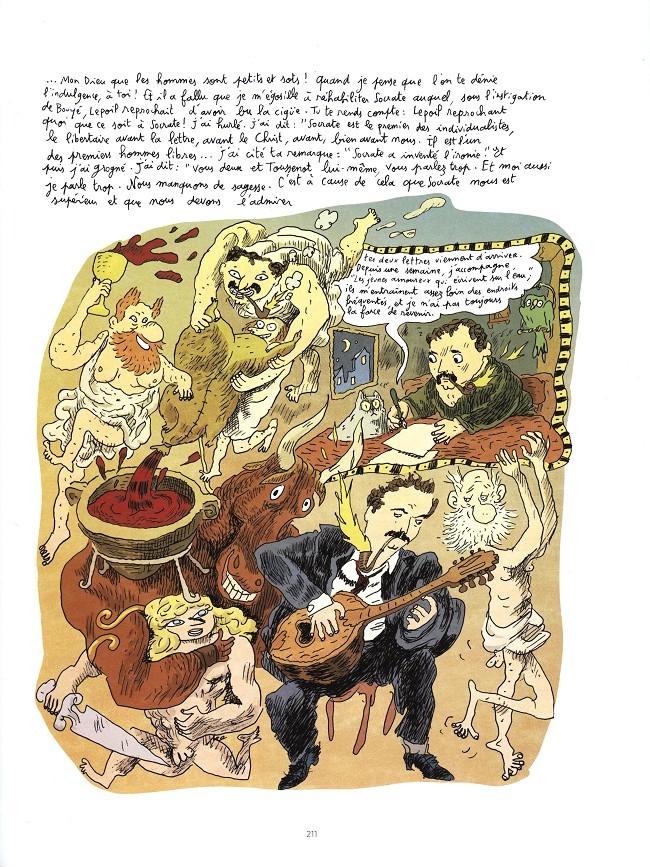 ... Mon Dieu que les hommes sont petits et sots ! Quand je pense que l'on te dénie
l'indulgence, à toi ! Et il a fallu que je m'égosille à réhabiliter Socrate auquel, sous l'instigation
de Bouyé, Lepoil reprochait d'avoir bu la cigüe. Tu te rends compte : Lepoil reprochant
quoi que ce soit à Socrate ! J'ai hurlé. J'ai dit : "Socrate est le premier des individualistes,
le libertaire avant la lettre, avant le Christ, avant, bien avant nous. Il est l'un
des premiers hommes libres... J'ai cité ta remarque : "Socrate a inventé l'ironie !" Et
puis j'ai grogné. J'ai dit : "Vous deux et Toussenot lui-même, vous parlez trop. Et moi aussi
je parle trop. Nous manquons de sagesse. C'est à cause de cela que Socrate nous est
supérieur et que nous devons l'admirer
tes deux lettres viennent d'arriver.
Depuis une semaine, j'accompagne
"Les jeunes amoureux qui écrivent sur l'eau,"
ils m'entraînent assez loin des endroits
fréquentés, et je n'ai pas toujours
la force de revenir.
211